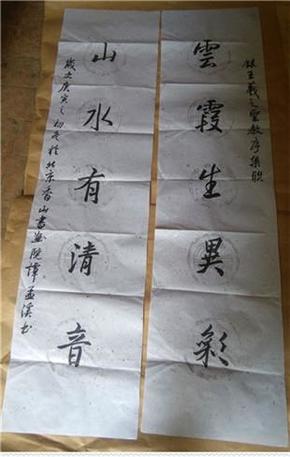 雲霞生異彩
録王羲之聖教序集聯
山水有清音
歲次庚寅之初冬於北京香山書畫院譚孟溪书